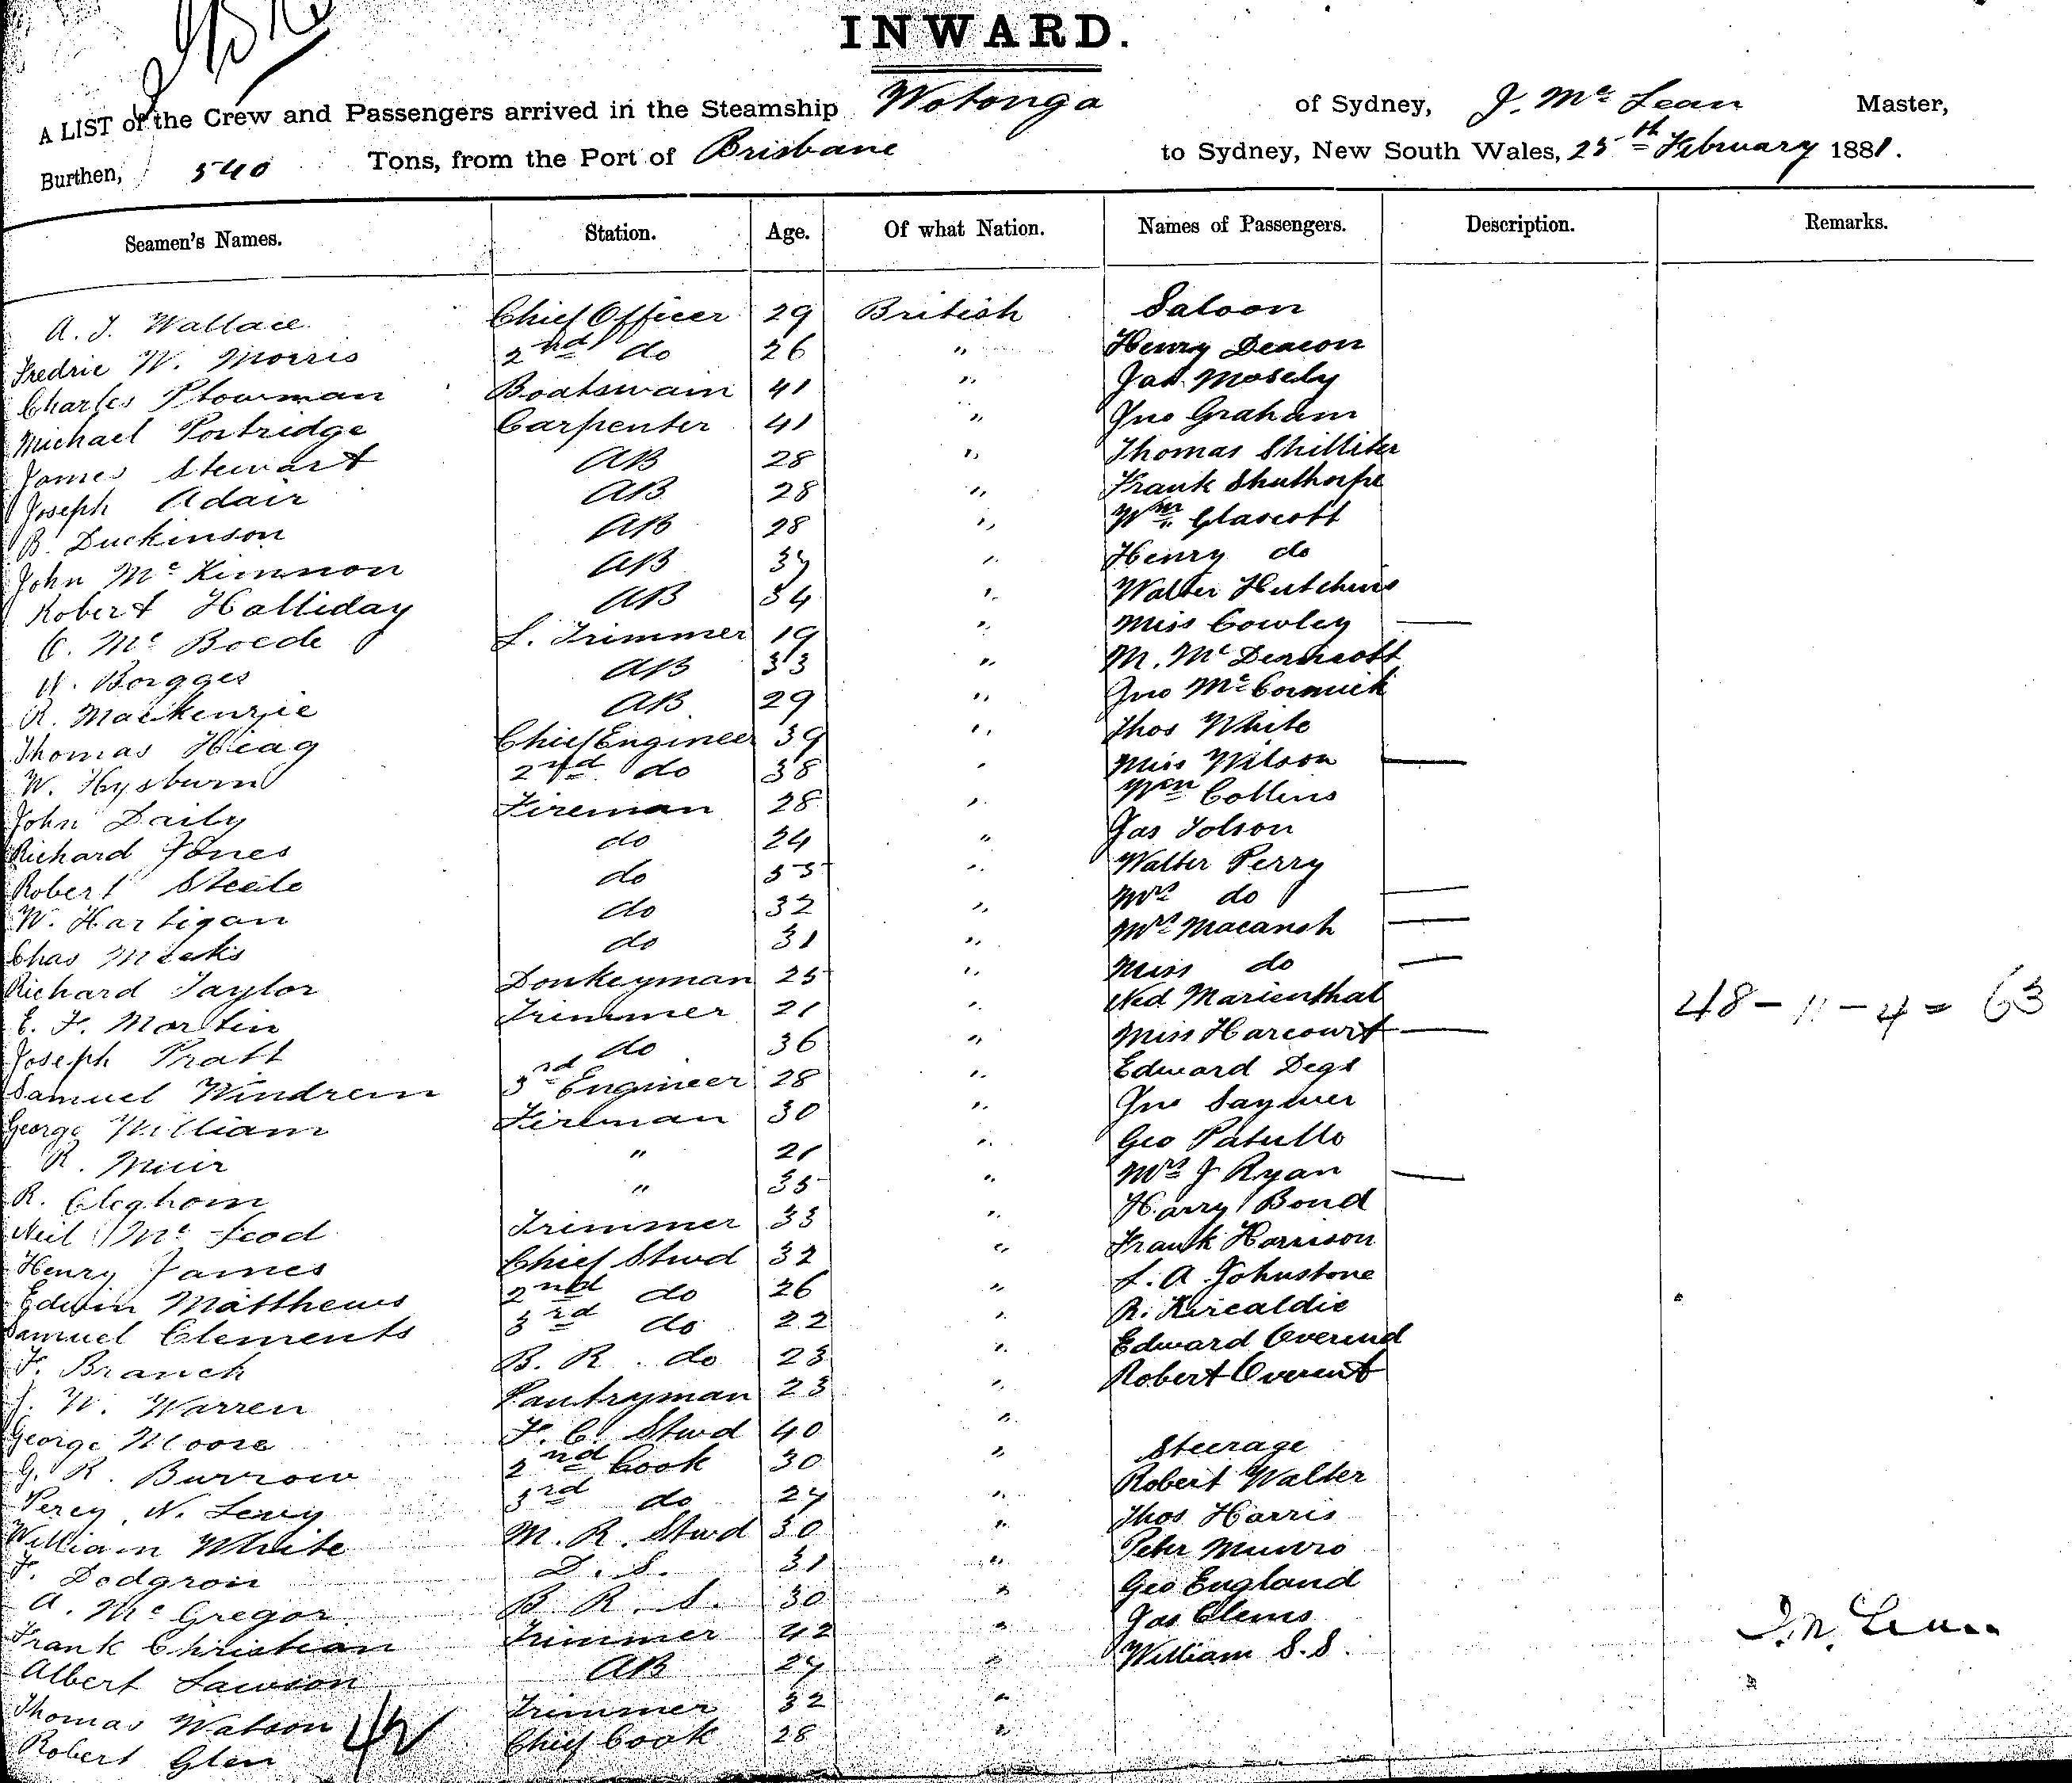 INWARD.
A LIST of the Crew and Passengers arrived in the Steamship Wotonga of Sydney, J. Mc Lean Master,
Burthen, 540 Tons, from the Port of Brisbane to Sydney, New South Wales, 25th February 1881.
Seamen's Names. Station. Age. Of what Nation. Names of Passengers. Description. Remarks.
A. J. Wallace Chief Officer 29 British Saloon
Fredric W. Morris 2nd do 26 " Henry Deacon
Charles Plowman Boatswain 41 " Jas Mosely
Michael Portridge Carpenter 41 " Jno Graham
James Stewart AB 28 " Thomas Shilliter
Joseph Adair AB 28 " Frank Shuthorpe
B. Duckinson AB 28 " Wm Glascott
John Mc Kimmon AB 37 " Henry do
Robert Halliday AB 34 " Walter Hutchins
C. Mc Boede L. Trimmer 19 " Miss Cowley —
W. Borgges AB 33 " M. Mc Dermott
R. Mackenzie AB 29 " Jno Mc Cormick
Thomas Heag Chief Engineer 39 " Thos White
W. Hysburn 2nd do 38 " Miss Wilson —
John Daily Fireman 28 " Wm Collins
Richard Jones do 24 " Jas Tolson
Robert Steele do 35 " Walter Perry
W. Hartigan do 32 " Mrs do —
Chas Meeks do 31 " Mrs Macansh —
Richard Taylor Donkeyman 25 " Miss do —
E. F. Martin Trimmer 21 " Ned Marienthal 48 - 11 - 4 = 63
Joseph Pratt do 36 " Miss Harcourt —
Samuel Windrem 3rd Engineer 28 " Edward Degs
George William Fireman 30 " Jno
R. Muir " 21 " Geo Patullo
R. Cleghorn " 35 " Mrs J Ryan —
Neil Mc Leod Trimmer 33 " Harry Bond
Henry James Chief Stwd 32 " Frank Harrison
Edwin Matthews 2nd do 26 " L. A. Johnstone
Samuel Clements 3rd do 22 " R. Kircaldie
F. Branch B. R. do 23 " Edward Overend
J. W. Warren Pantryman 23 " Robert Overend
George Moore F. C. Stwd 40 "
G. R. Burrow 2nd Cook 30 " Steerage
Percy N. Levy 3rd do 27 " Robert Walter
William White M. R. Stwd 30 " Thos Harris
F. Dodgron D. S. 31 " Peter Munro
A. Mc Gregor B. R. S. 30 " Geo England
Frank Christian Trimmer 42 " Jas Clems
Albert Lawson AB 27 " William S.S. J. M. Lean
Thomas Watson Trimmer 32 "
Robert Glen Chief Cook 28 "